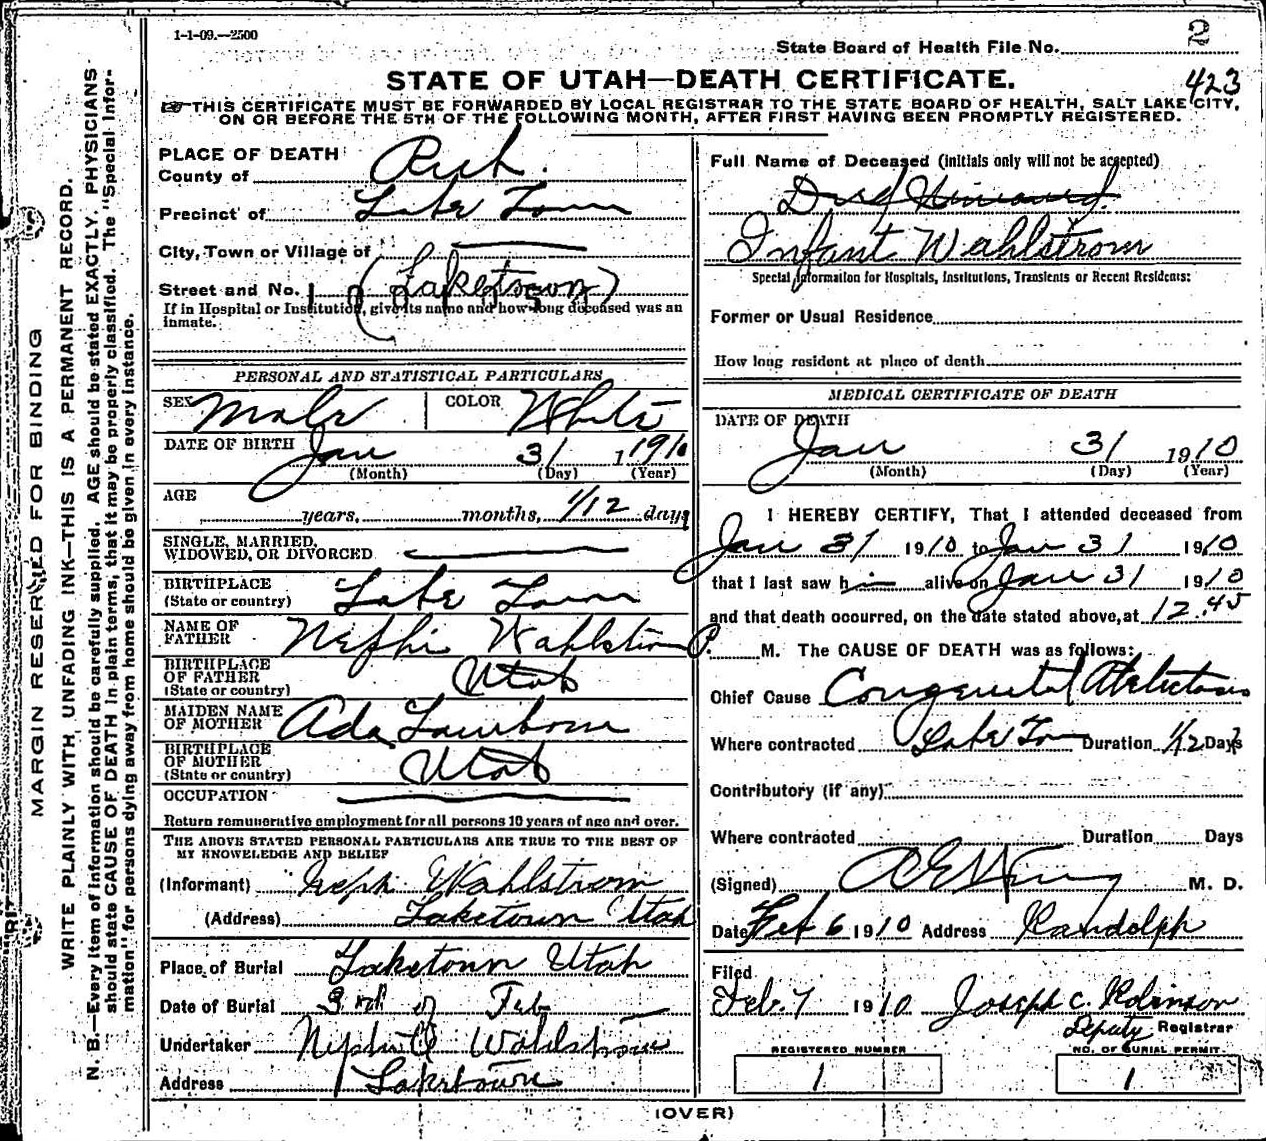 1-1-09.—2500
State Board of Health File No. 2
423
STATE OF UTAH—DEATH CERTIFICATE.
THIS CERTIFICATE MUST BE FORWARDED BY LOCAL REGISTRAR TO THE STATE BOARD OF HEALTH, SALT LAKE CITY,
ON OR BEFORE THE 5TH OF THE FOLLOWING MONTH, AFTER FIRST HAVING BEEN PROMPTLY REGISTERED.
MARGIN RESERVED FOR BINDING
WRITE PLAINLY WITH UNFADING INK—THIS IS A PERMANENT RECORD.
N. B.—Every item of information should be carefully supplied. AGE should be stated EXACTLY. PHYSICIANS
should state CAUSE OF DEATH in plain terms, that it may be properly classified. The "Special Infor-
mation" for persons dying away from home should be given in every instance.
PLACE OF DEATH
County of Rich.
Precinct of Lake Town
City, Town or Village of
Street and No. (Laketown)
If in Hospital or Institution, give its name and how long deceased was an
inmate.
PERSONAL AND STATISTICAL PARTICULARS
SEX Male COLOR White
DATE OF BIRTH Jan 31 1910
(Month) (Day) (Year)
AGE
years, months, 1/12 days
SINGLE, MARRIED,
WIDOWED, OR DIVORCED
BIRTHPLACE
(State or country) Lake Town
NAME OF
FATHER Nephi Wahlstrom
BIRTHPLACE
OF FATHER
(State or country) Utah
MAIDEN NAME
OF MOTHER Ada
BIRTHPLACE
OF MOTHER
(State or country) Utah
OCCUPATION
Return remunerative employment for all persons 10 years of age and over.
THE ABOVE STATED PERSONAL PARTICULARS ARE TRUE TO THE BEST OF
MY KNOWLEDGE AND BELIEF
(Informant) Neph Wahlstrom
(Address) Laketown Utah
Place of Burial Laketown Utah
Date of Burial 3rd of Feb
Undertaker Wahlstrom
Address Laketown
Full Name of Deceased (initials only will not be accepted)
Infant Wahlstrom
Special Information for Hospitals, Institutions, Transients or Recent Residents:
Former or Usual Residence
How long resident at place of death
MEDICAL CERTIFICATE OF DEATH
DATE OF DEATH
Jan 31 1910
(Month) (Day) (Year)
I HEREBY CERTIFY, That I attended deceased from
Jan 31 1910 to Jan 31 1910
that I last saw him alive on Jan 31 1910
and that death occurred, on the date stated above, at 12.45
P. M. The CAUSE OF DEATH was as follows:
Chief Cause Congenital Atelectasis
Where contracted Lake Town Duration 1/12 Days
Contributory (if any)
Where contracted Duration Days
(Signed) M. D.
Date Feb 6 1910 Address Randolph
Filed
Feb. 7 1910 Joseph C. Robinson
Deputy Registrar
REGISTERED NUMBER
1
NO. OF BURIAL PERMIT
1
(OVER)